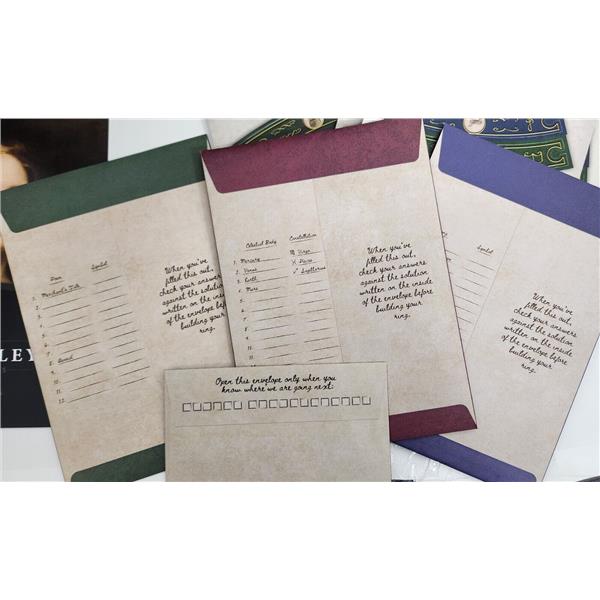 LEY
Symbol
1. Merchant's Tale
2.
3.
4.
5.
6.
7.
8.
9.
10.
11.
12.
When you've
filled this out,
check your answers
against the solution
written on the inside
of the envelope before
building your
ring.
Celestial Body Constellation
1. Mercury ♍ Virgo
2. Venus Pisces
3. Earth Sagittarius
4. Mars
5.
6.
7.
8.
9.
10.
11.
12.
When you've
filled this out,
check your answers
against the solution
written on the inside
of the envelope before
building your
ring.
Symbol
When you've
filled this out,
check your answers
against the solution
written on the inside
of the envelope before
building your
ring.
Open this envelope only when you
know where we are going next: